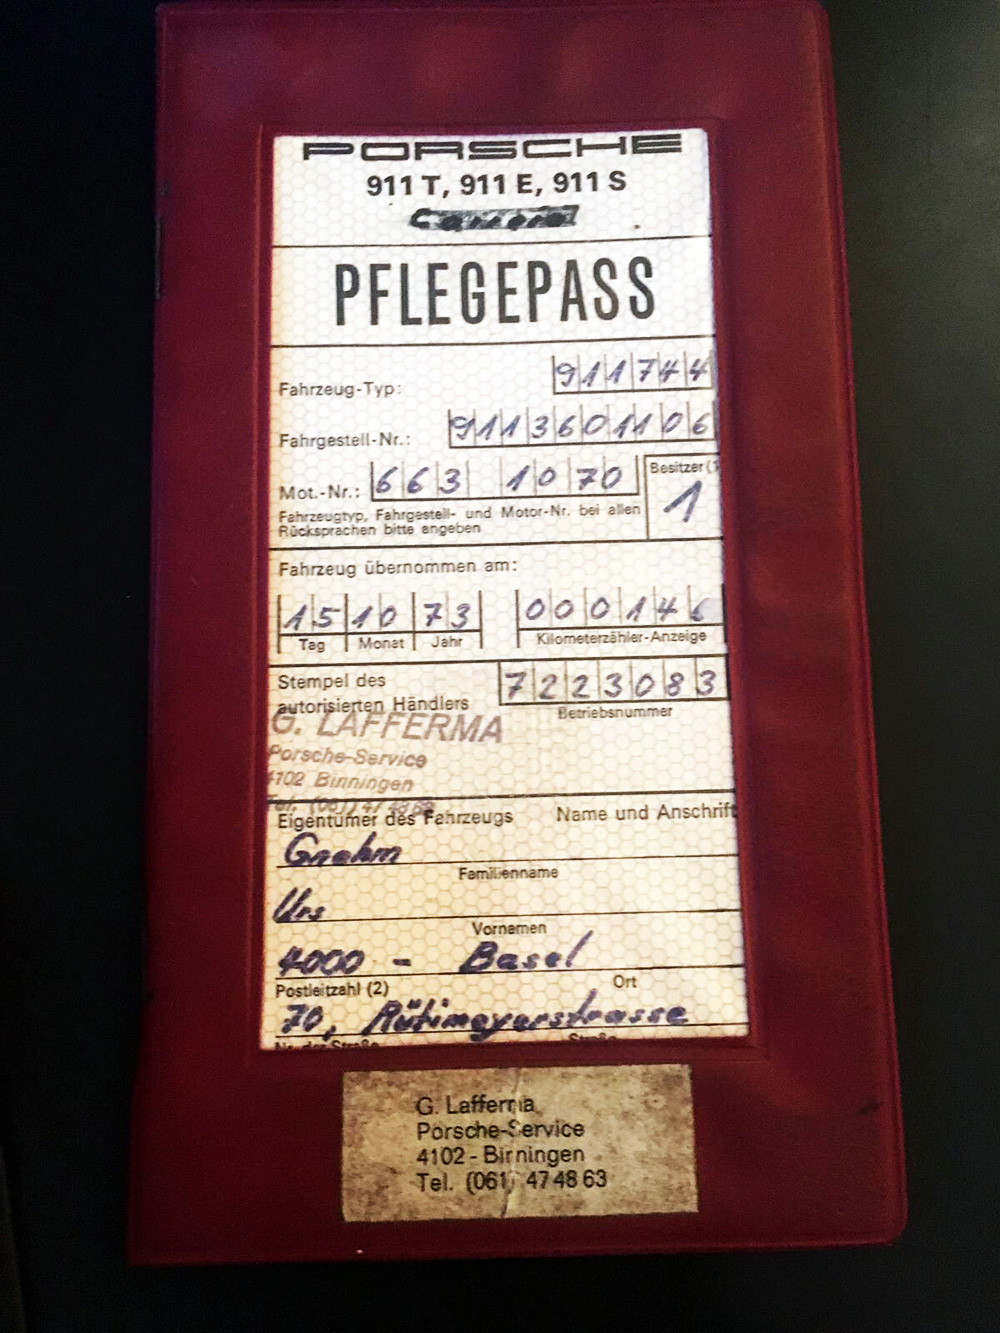 PORSCHE
911 T, 911 E, 911 S
Carrera
PFLEGEPASS
Fahrzeug-Typ: 911744
Fahrgestell-Nr.: 9113601106
Mot.-Nr.: 663 1070
Besitzer (1
1
Fahrzeugtyp, Fahrgestell- und Motor-Nr. bei allen
Rücksprachen bitte angeben
Fahrzeug übernommen am:
15 10 73 000146
Tag Monat Jahr Kilometerzähler-Anzeige
Stempel des
autorisierten Händlers
7223083
Betriebsnummer
G. LAFFERMA
Porsche-Service
4102 Binningen
Tel. (061) 47 48 63
Eigentümer des Fahrzeugs Name und Anschrift
Grehm
Familienname
Urs
Vornamen
4000 - Basel
Postleitzahl (2) Ort
70, Rütimeyerstrasse
Nr. der Straße Straße
G. Lafferma
Porsche-Service
4102 - Binningen
Tel. (061) 47 48 63